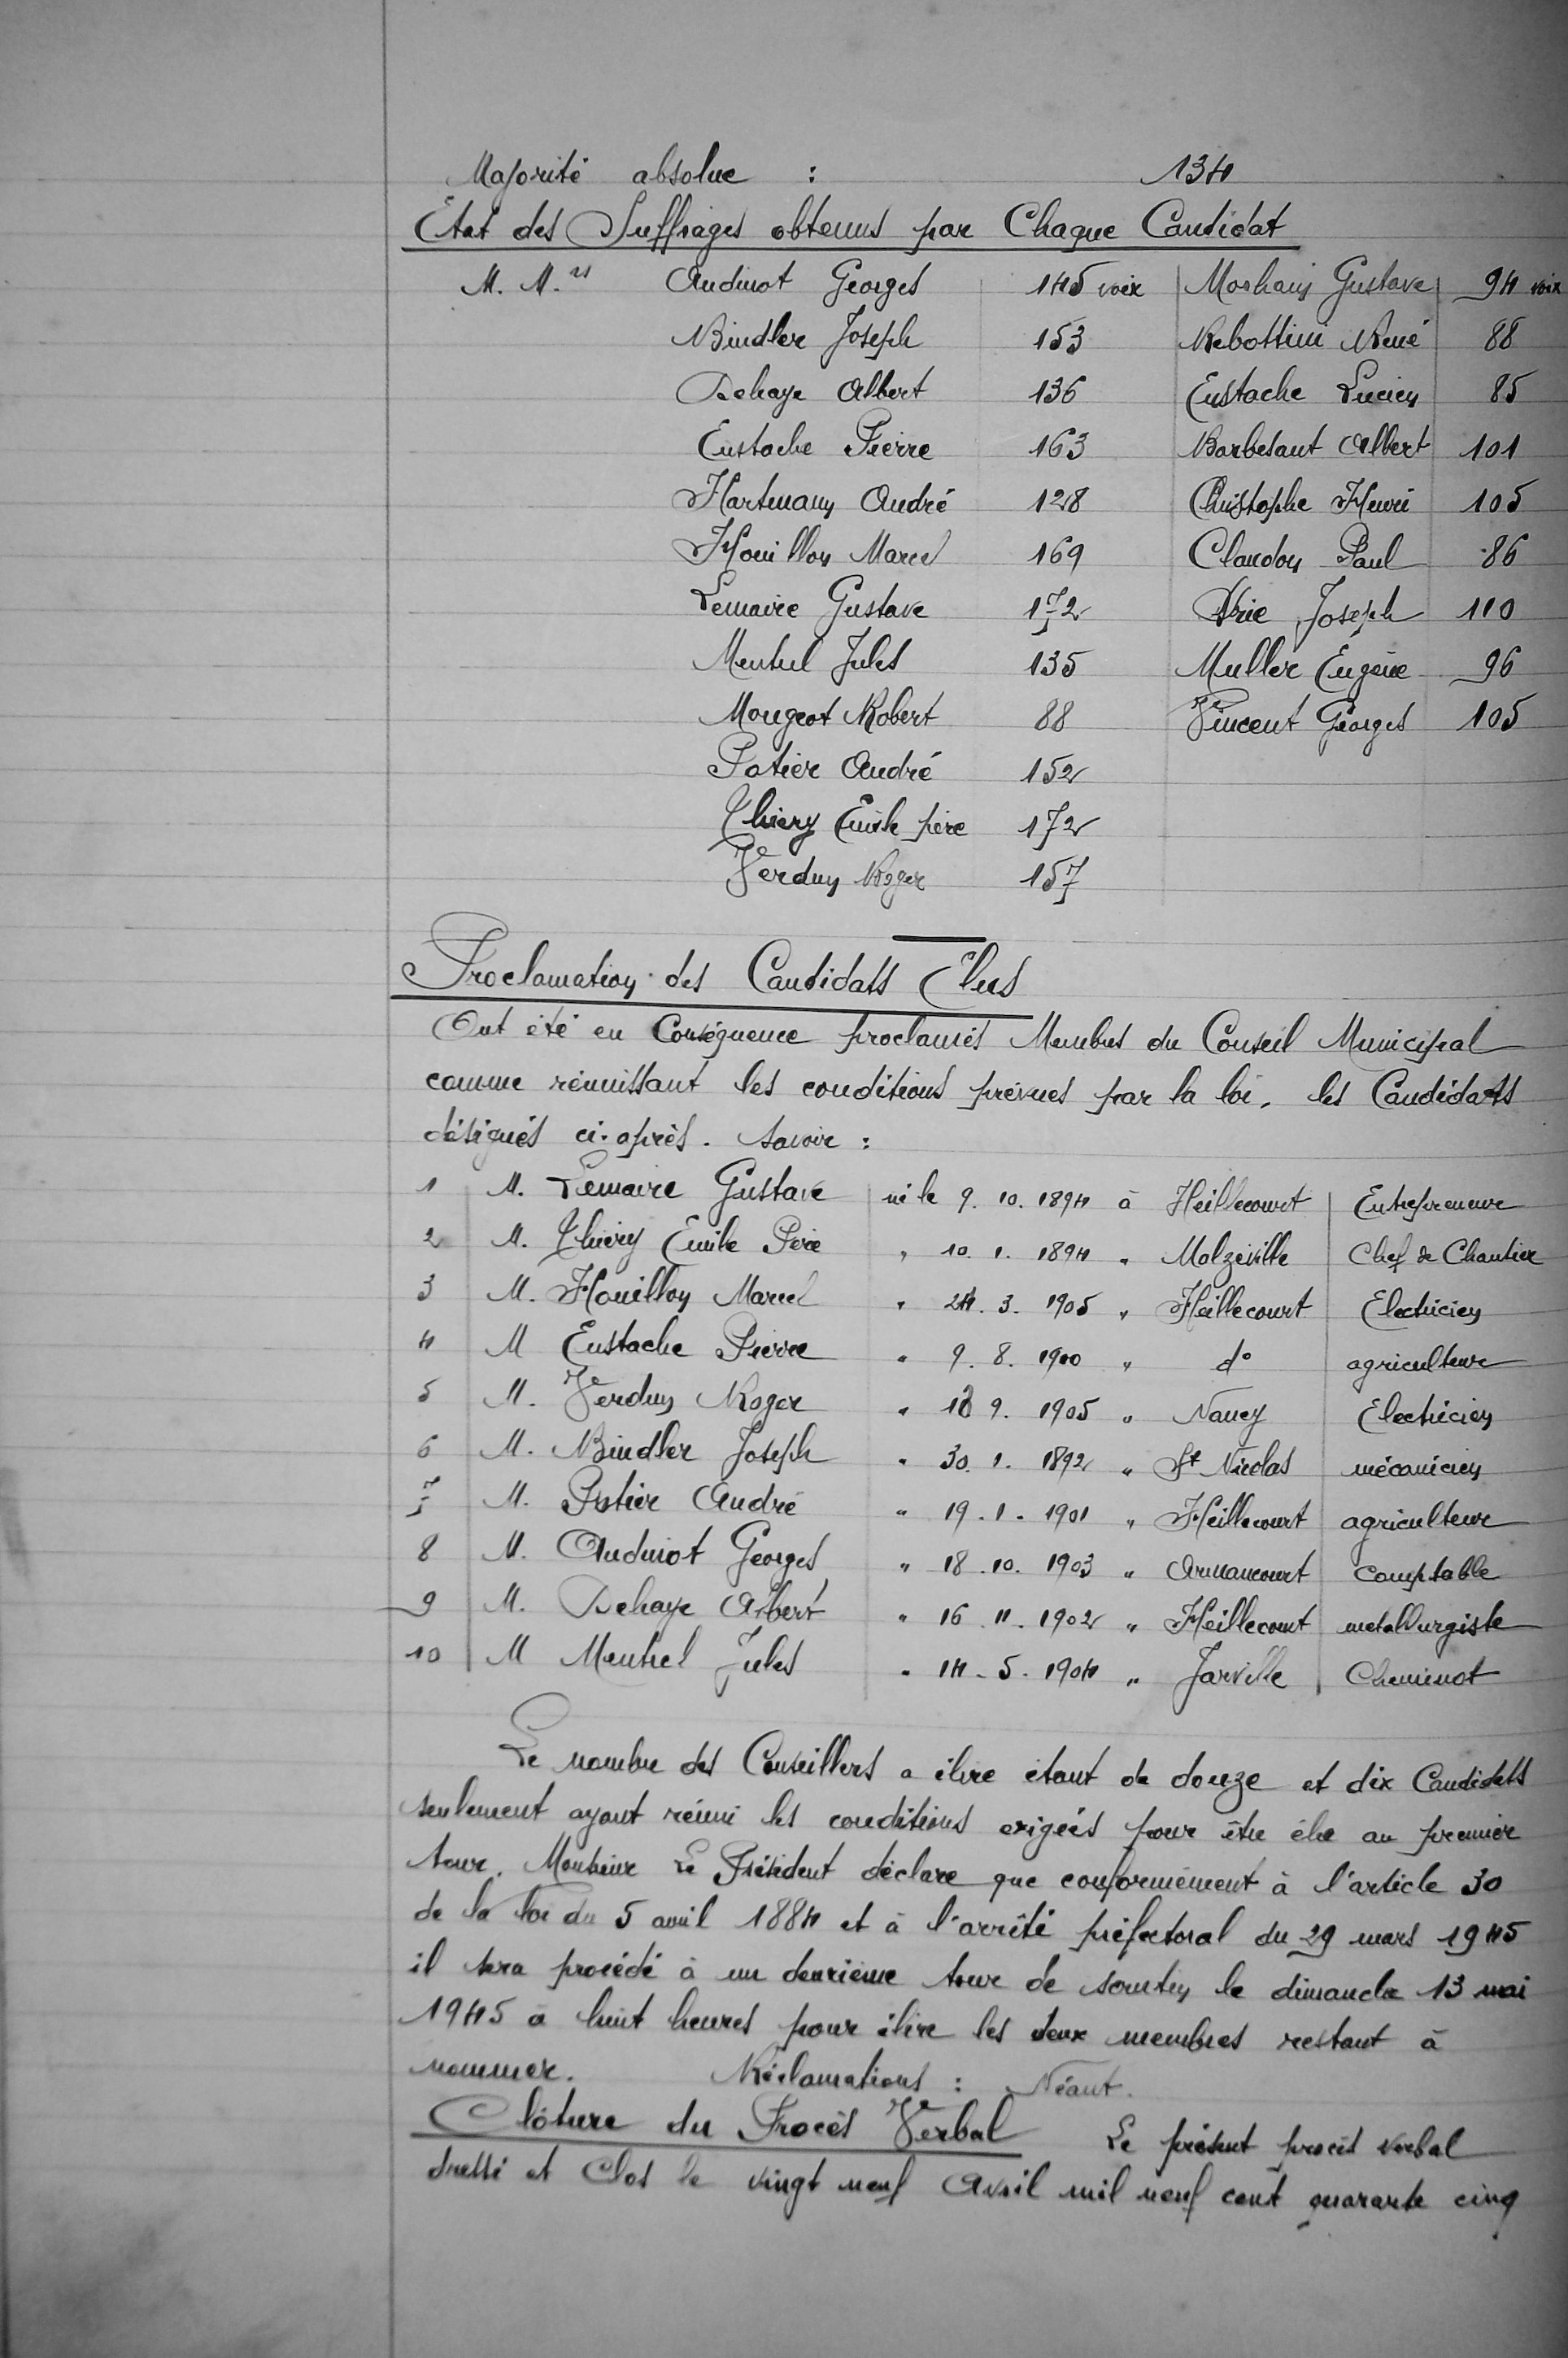 Majorité absolue : 134
Etat des Suffrages obtenus par Chaque Candidat
M. M.rs Audinot Georges 145 voix Morhain Gustave 94 voix
Bindler Joseph 153 Rebottini René 88
Dehaye Albert 136 Eustache Lucien 85
Eustache Pierre 163 Barbesant Albert 101
Hartmann André 128 Christophe Henri 105
Houillon Marcel 169 Claudon Paul 86
Lemaire Gustave 172 Joseph 110
Mentrel Jules 135 Muller Eugène 96
Mougeot Robert 88 Vincent Georges 105
Potier André 152
Thiery Emile père 172
Verdun Roger 157
Proclamation des Candidats Elus
Ont été en Conséquence proclamés Membres du Conseil Municipal
comme réunissant les conditions prévues par la loi, les Candidats
désignés ci-après. savoir :
1 M. Lemaire Gustave né le 9. 10. 1894 à Heillecourt Entrepreneur
2 M. Thiery Emile Père " 10. 1. 1894 " Malzéville Chef de Chantier
3 M. Houillon Marcel " 24. 3. 1905 " Heillecourt Electricien
4 M Eustache Pierre " 9. 8. 1900 " d° agriculteur
5 M. Verdun Roger " 18 9. 1905 " Nancy Electricien
6 M. Bindler Joseph " 30. 1. 1892 " St Nicolas mécanicien
7 M. Potier André " 19. 1. 1901 " Heillecourt agriculteur
8 M. Audinot Georges " 18. 10. 1903 " Armaucourt comptable
9 M. Dehaye Albert " 16. 11. 1902 " Heillecourt métallurgiste
10 M Mentrel Jules " 14. 5. 1904 " Jarville Cheminot
Le nombre des Conseillers a élire étant de douze et dix Candidats
seulement ayant réuni les conditions exigées pour être élu au premier
tour. Monsieur Le Président déclare que conformément à l'article 30
de la loi du 5 avril 1884 et à l'arrêté préfectoral du 29 mars 1945
il sera procédé à un deuxième tour de scrutin le dimanche 13 mai
1945 à huit heures pour élire les deux membres restant à
nommer. Réclamations : Néant.
Clôture du Procès Verbal Le présent procès verbal
dressé et Clos le vingt neuf Avril mil neuf cent quarante cinq